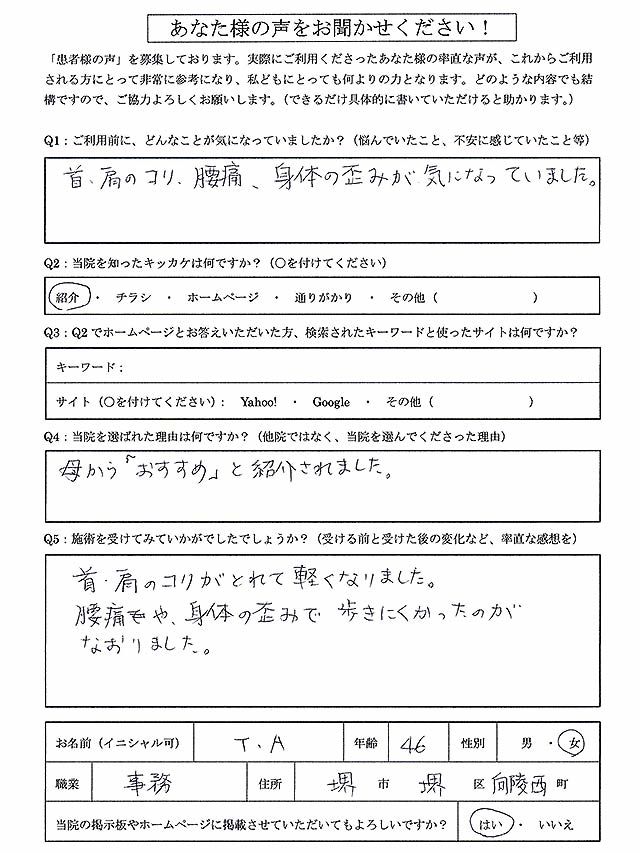 あなた様の声をお聞かせください！
「患者様の声」を募集しております。実際にご利用くださったあなた様の率直な声が、これからご利用
される方にとって非常に参考になり、私どもにとっても何よりの力となります。どのような内容でも結
構ですので、ご協力よろしくお願いします。（できるだけ具体的に書いていただけると助かります。）
Q1：ご利用前に、どんなことが気になっていましたか？（悩んでいたこと、不安に感じていたこと等）
首、肩のコリ、腰痛、身体の歪みが気になっていました。
Q2：当院を知ったキッカケは何ですか？（〇を付けてください）
紹介 ・ チラシ ・ ホームページ ・ 通りがかり ・ その他（　　　）
Q3：Q2でホームページとお答えいただいた方、検索されたキーワードと使ったサイトは何ですか？
キーワード：
サイト（〇を付けてください）： Yahoo! ・ Google ・ その他（　　　）
Q4：当院を選ばれた理由は何ですか？（他院ではなく、当院を選んでくださった理由）
母から「おすすめ」と紹介されました。
Q5：施術を受けてみていかがでしたでしょうか？（受ける前と受けた後の変化など、率直な感想を）
首・肩のコリがとれて軽くなりました。
腰痛や、身体の歪みで歩きにくかったのが
なおりました。
お名前（イニシャル可） T.A 年齢 46 性別 男 ・ 女
職業 事務 住所 堺 市 堺 区 向陵西 町
当院の掲示板やホームページに掲載させていただいてもよろしいですか？ はい ・ いいえ